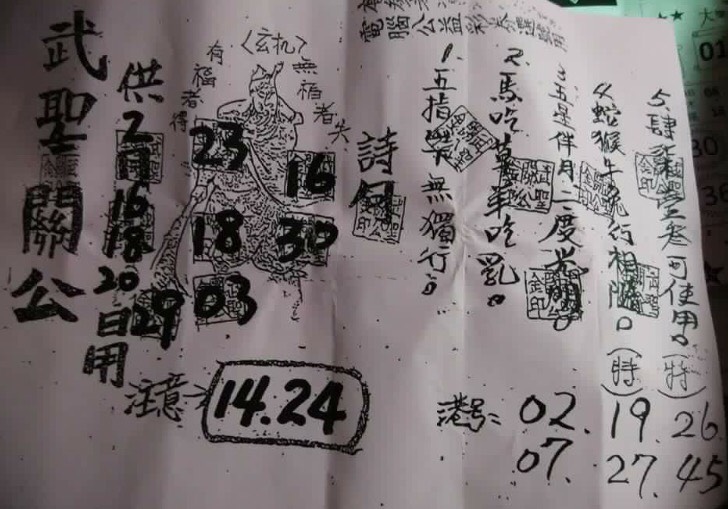 武聖關公
供2月16 18 20日用
有福者得
〈玄机〉
無福者失
23
16
18
30
29
03
注意→
14.24
詩句
1. 五指 無獨行。
2. 馬吃萬羊吃乳。
3. 五星伴月二度光明。
4. 蛇猴牛流行相隨。(特)
5. 肆柒 叁可使用。(特)
港号:
02. 19. 26
07. 27. 45